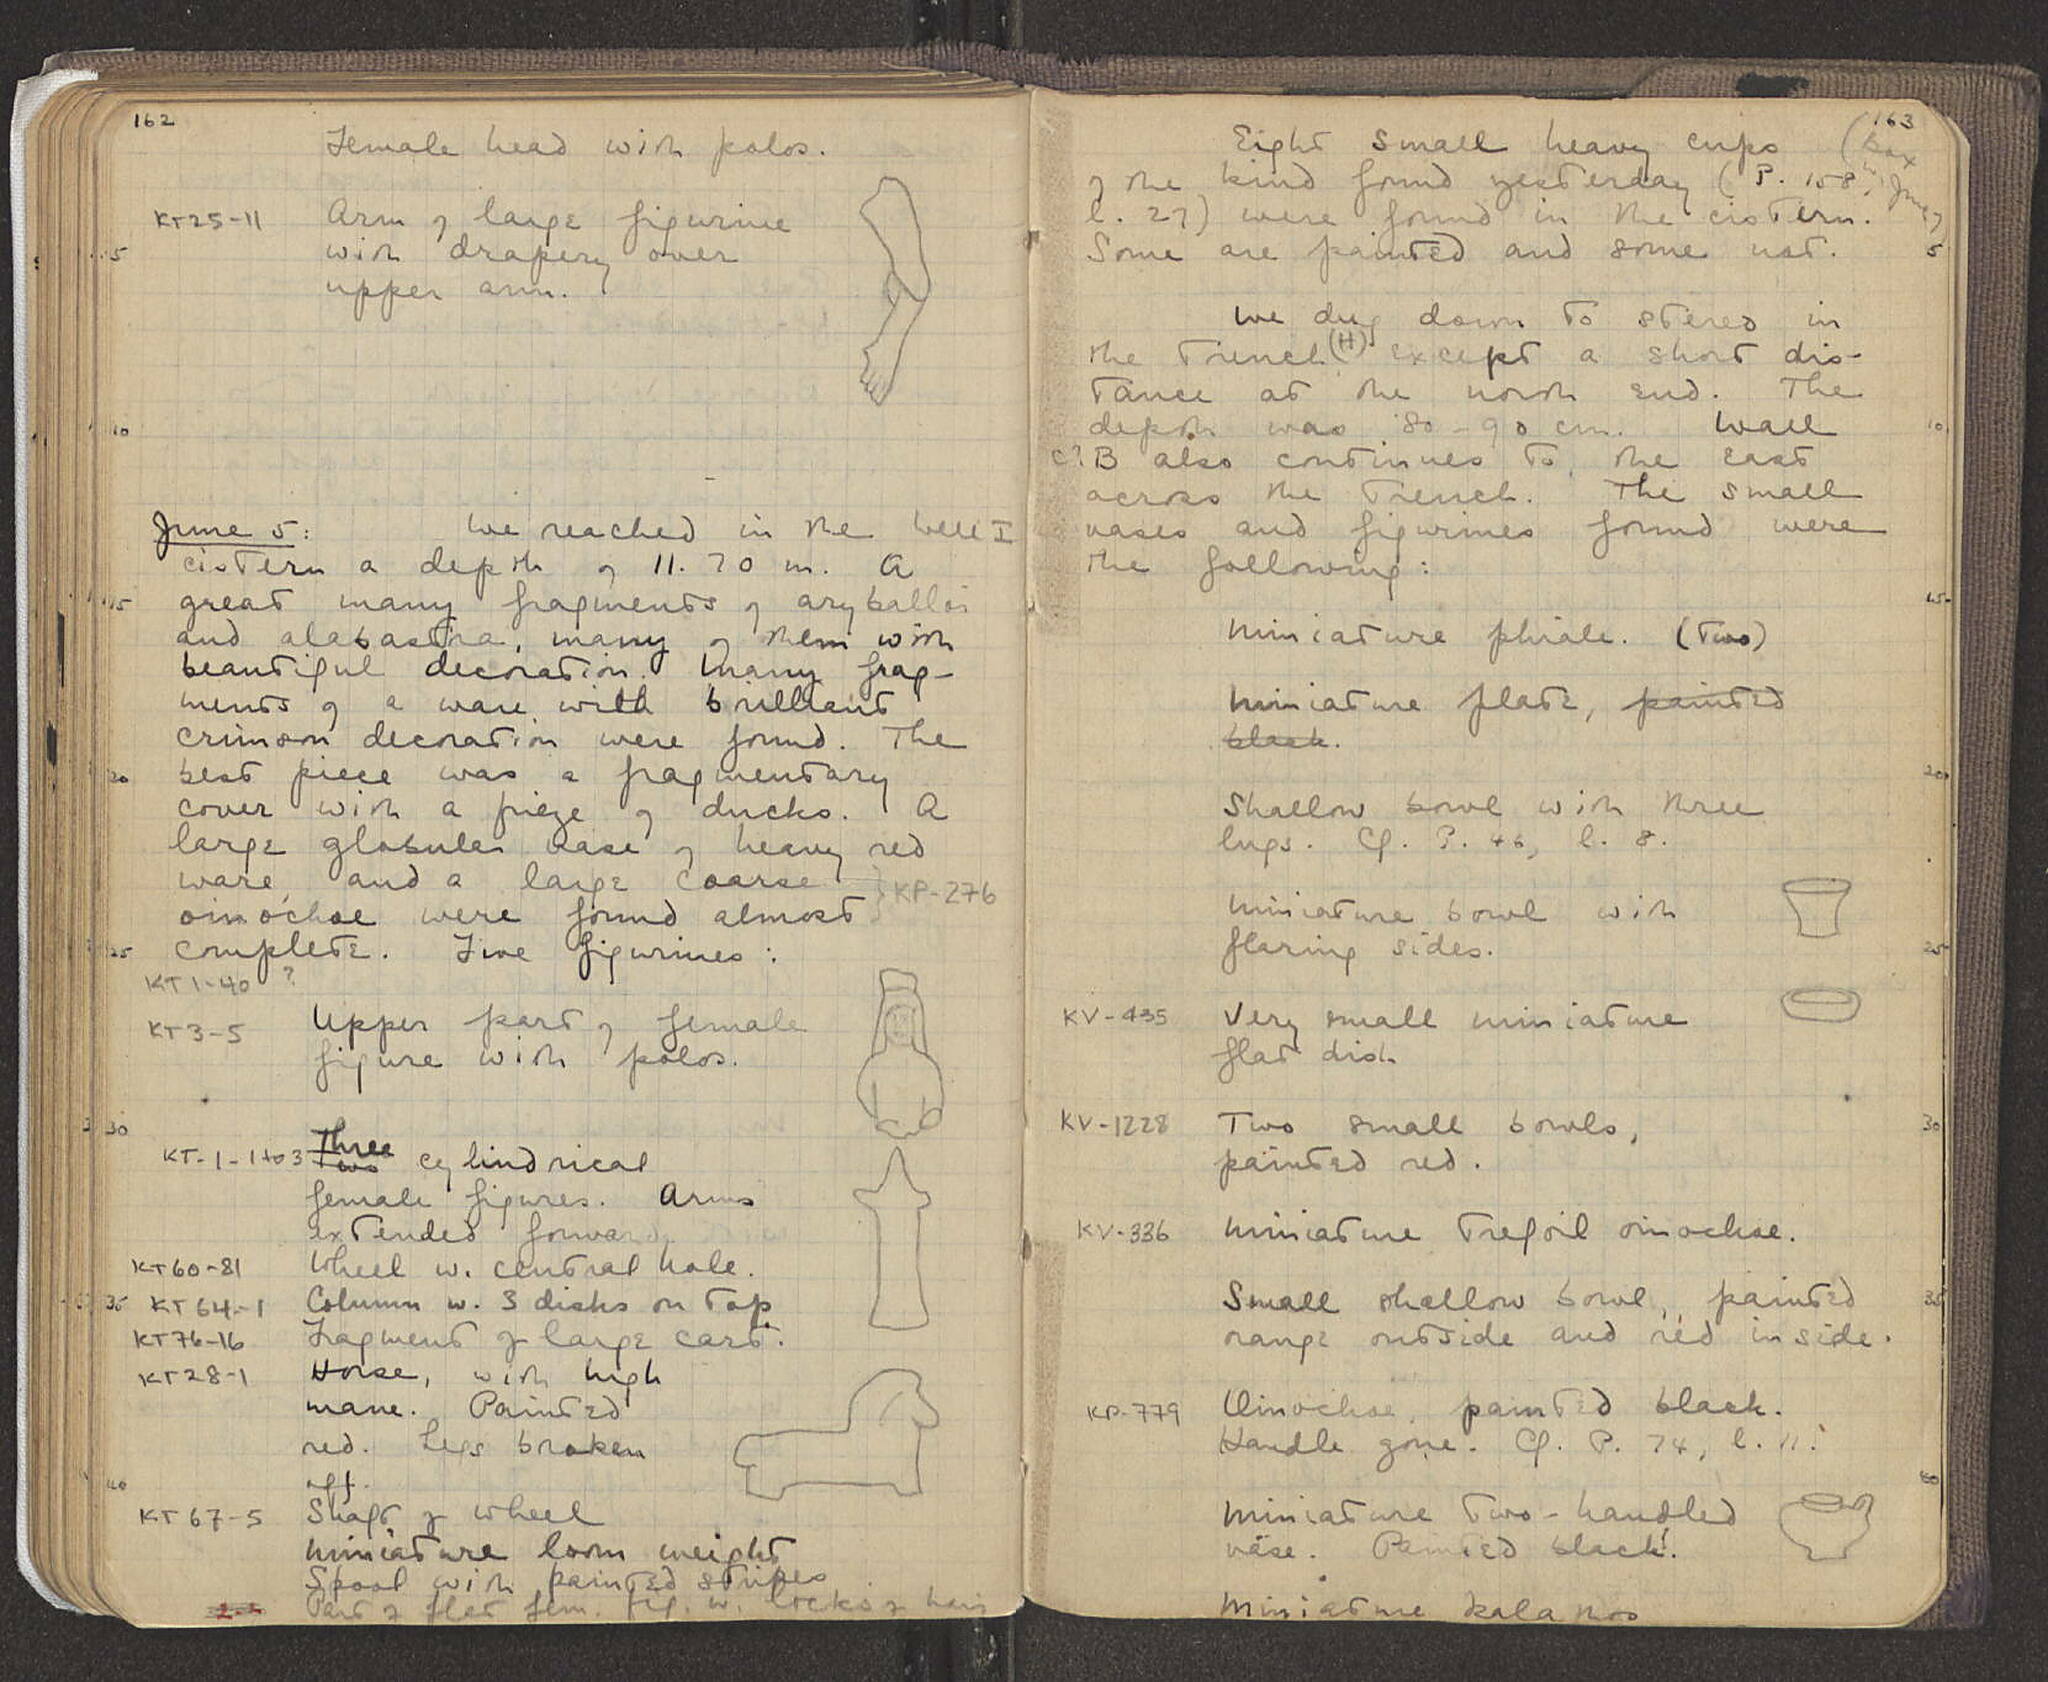 162
Female head with polos.
KT25-11 Arm of large figurine
5 with drapery over
upper arm.
10
June 5: We reached in the well I
cistern a depth of 11.70 m. A
15 great many fragments of aryballoi
and alabastra, many of them with
beautiful decoration. Many frag-
ments of a ware with brilliant
crimson decoration were found. The
20 best piece was a fragmentary
cover with a frieze of ducks. A
large globular vase of heavy red
ware, and a large coarse } KP-276
oinochoe were found almost
25 complete. Five figurines:
KT1-40 ?
KT3-5 Upper part of female
figure with polos.
30
KT-1-1to3 Three
Two cylindrical
female figures. Arms
extended forward.
KT60-81 Wheel w. central hole.
35 KT64-1 Column w. 3 disks on top.
KT76-16 Fragment of large cart.
KT28-1 Horse, with high
mane. Painted
red. Legs broken
40 off.
KT67-5 Shaft of wheel
Miniature loom weight
Spool with painted stripes
Part of flat fem. fig. w. locks of hair
163
Eight small heavy cups (box
of the kind found yesterday (P. 158,
l. 27) were found in the cistern. June)
Some are painted and some not. 5
We dug down to stereo in
the trench (H) except a short dis-
tance at the north end. The
depth was 80-90 cm. Wall 10
C? B also continues to the east
across the trench. The small
vases and figurines found were
the following:
15
Miniature phiale. (Two)
Miniature plate, painted
black.
20
Shallow bowl with three
lugs. Cf. P. 46, l. 8.
Miniature bowl with
flaring sides. 25
KV-435 Very small miniature
flat dish
KV-1228 Two small bowls, 30
painted red.
KV-336 Miniature trefoil oinochoe.
Small shallow bowl, painted 35
orange outside and red inside.
KP-779 Oinochoe, painted black.
Handle gone. Cf. P. 74, l. 11.
40
Miniature two-handled
vase. Painted black.
Miniature kalathos